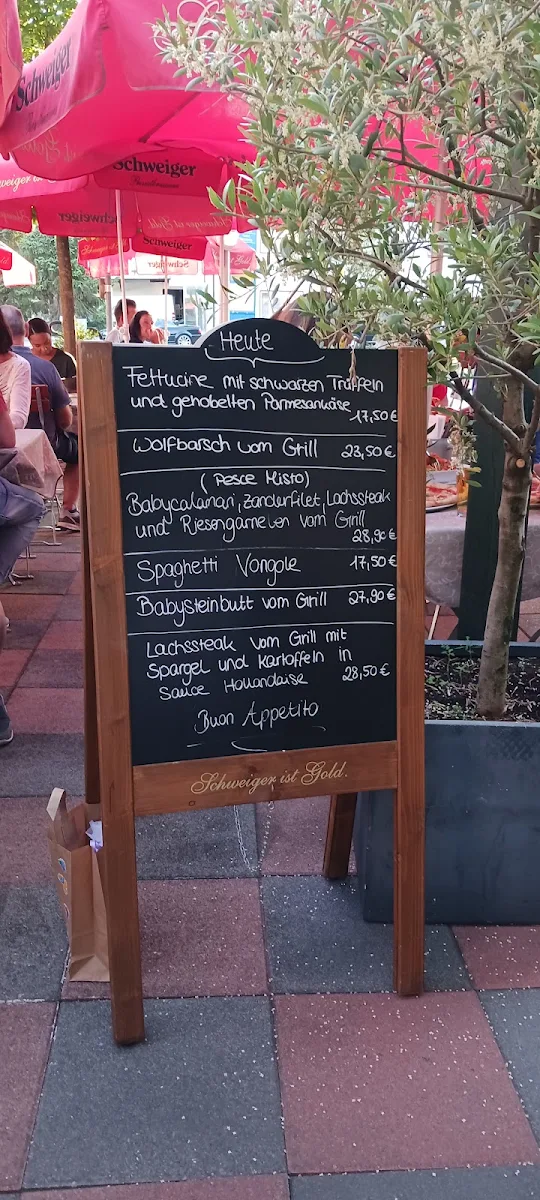 Schweiger
Schweiger
Schweiger
Schweiger
Schweiger
ist Gold.
Heute
Fettucine mit schwarzen Trüffeln
und gehobelten Parmesankäse
17,50€
Wolfbarsch vom Grill 23,50€
(Pesce Misto)
Babycalamari, Zanderfilet, Lachssteak
und Riesengarnelen vom Grill
28,90€
Spaghetti Vongole 17,50€
Babysteinbutt vom Grill 27,90€
Lachssteak vom Grill mit
Spargel und Kartoffeln in
Sauce Hollandaise 28,50€
Buon Appetito
Schweiger ist Gold.